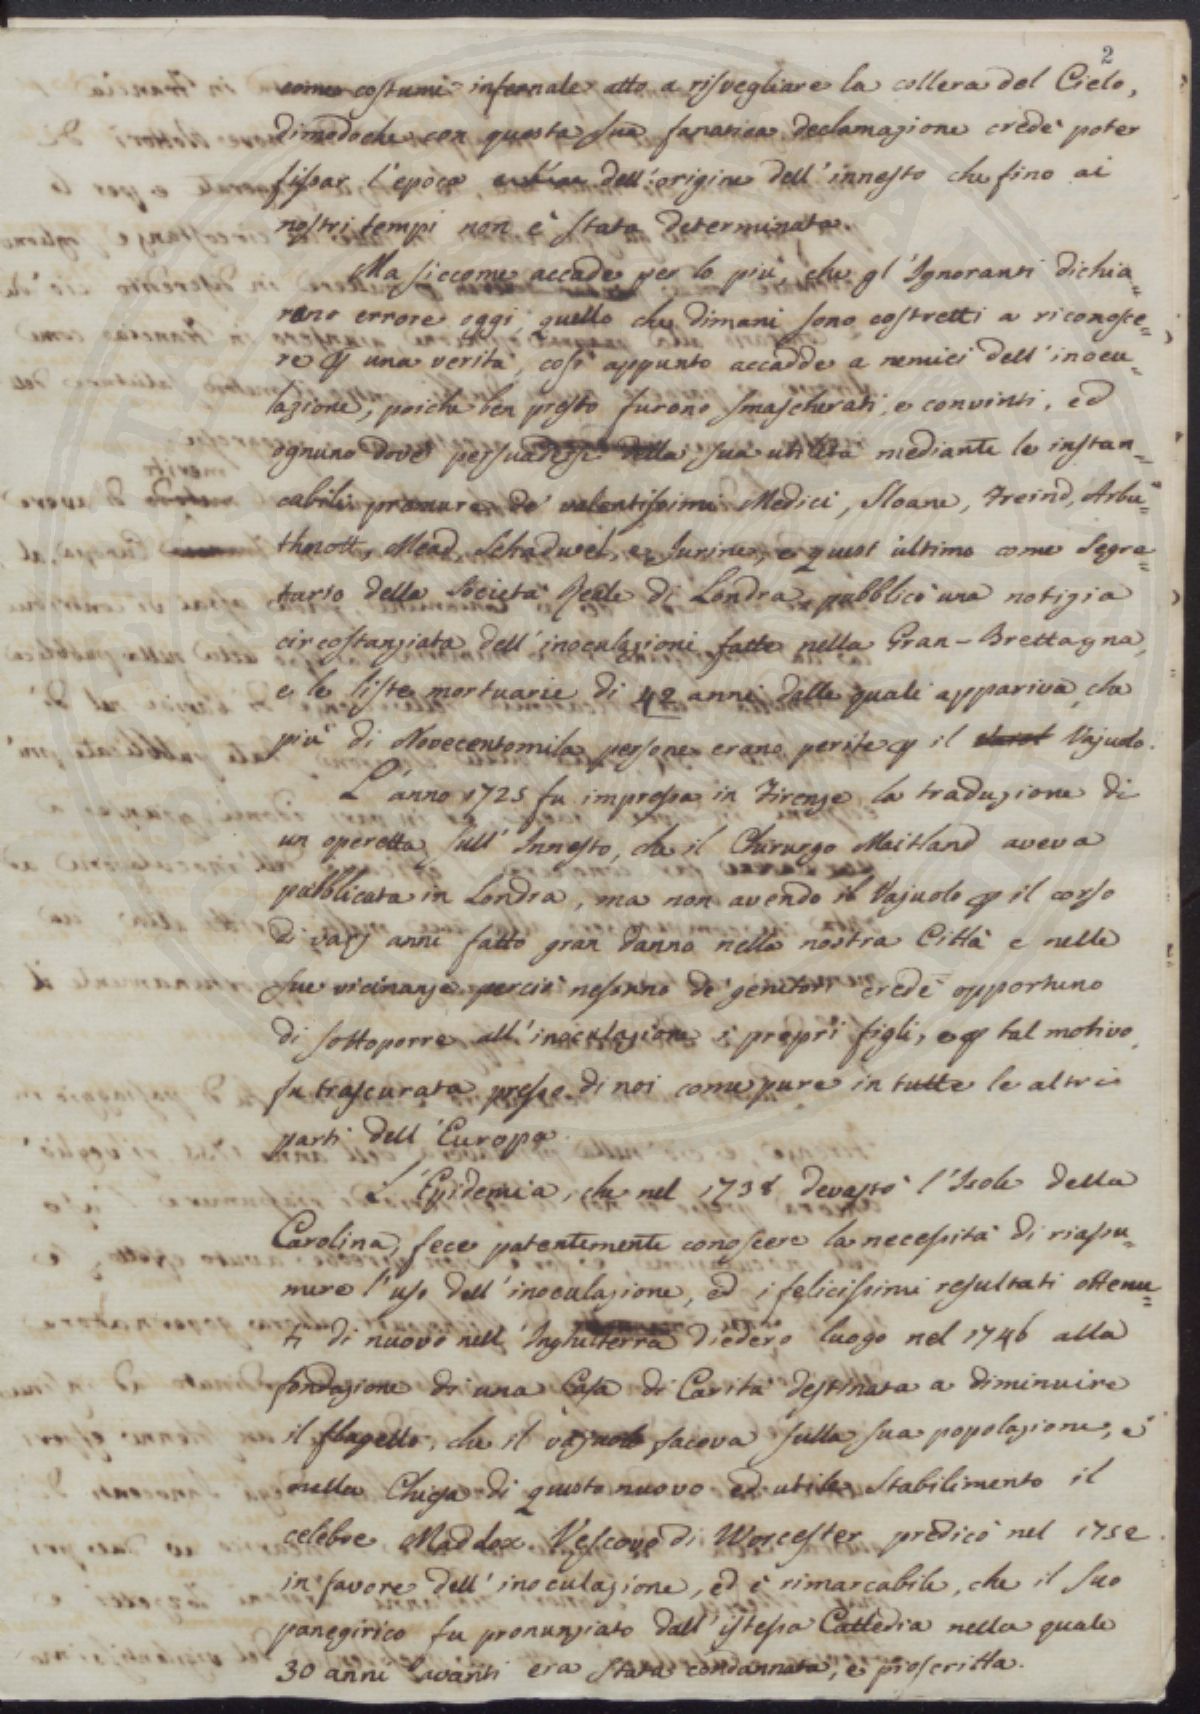 2
come costume infernale atto a risvegliare la collera del Cielo,
dimodoche con questa sua fanatica declamazione credè poter
fissar l'epoca dell'origine dell'innesto che fino ai
nostri tempi non è stata determinata.
Ma siccome accade per lo più, che gl'Ignoranti dichia=
rano errore oggi, quello che dimani sono costretti a riconosce=
re p una verità, così appunto accadde a nemici dell'inocu=
lazione, poiche ben presto furono smascherati, e convinti, ed
ognuno dovè persuadersi della sua utilità mediante le instan=
cabili premure de' valentissimi Medici, Sloane, Freind, Arbu=
thnott, Mead, Schadwel, e Jurine, e quest'ultimo come Segre=
tario della Società Reale di Londra pubblicò una notizia
circostanziata dell'inoculazioni fatte nella Gran-Brettagna,
e le liste mortuarie di 42 anni dalle quali appariva, che
più di Novecentomila persone erano perite p il Vajuolo.
L'anno 1725 fu impressa in Firenze la traduzione di
un operetta sull'Innesto, che il Chirurgo Maitland aveva
pubblicata in Londra, ma non avendo il Vajuolo p il corso
di varj anni fatto gran danno nella nostra Città e nelle
sue vicinanze perciò nessuno de' genitori credè opportuno
di sottoporre all'inoculazione i proprj figli, e p tal motivo
fu trascurata presso di noi come pure in tutte le altre
parti dell'Europa.
L'Epidemia, che nel 1738 devastò l'Isole della
Carolina, fece patentemente conoscere la necessità di riassu=
mere l'uso dell'inoculazione, ed i felicissimi resultati ottenu=
ti di nuovo nell'Inghilterra diedero luogo nel 1746 alla
fondazione di una Casa di Carità destinata a diminuire
il flagello, che il vajuolo faceva sulla sua popolazione, e
nella Chiesa di questo nuovo ed utile Stabilimento il
celebre Maddox Vescovo di Worcester predicò nel 1752
in favore dell'inoculazione, ed è rimarcabile, che il suo
panegirico fu pronunziato dall'istessa Cattedra nella quale
30 anni avanti era stata condannata, e proscritta.